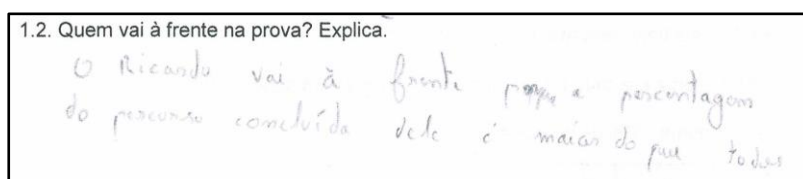 1.2. Quem vai à frente na prova? Explica.
O Ricardo vai à frente porque a percentagem
do percurso concluída dele é maior do que todas